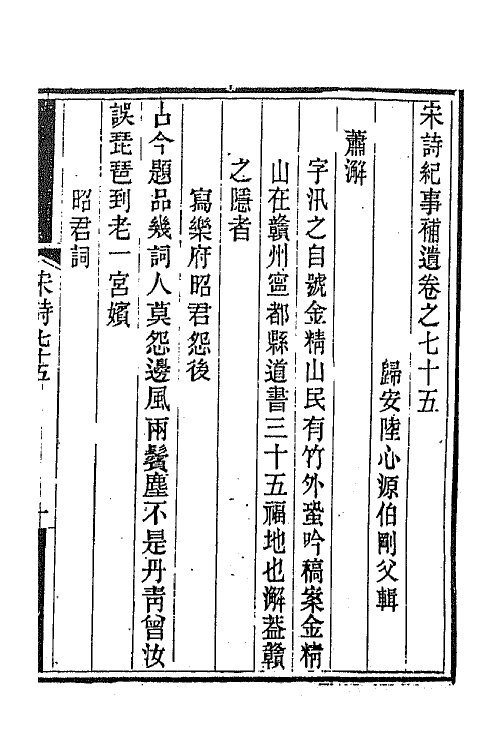 宋詩紀事補遺卷之七十五
歸安陸心源伯剛父輯
蕭澥
字汛之自號金精山民有竹外蛩吟稿案金精
山在贛州寧都縣道書三十五福地也澥葢贛
之隱者
寫樂府昭君怨後
古今題品幾詞人莫怨邊風兩鬢塵不是丹靑曾汝
誤琵琶到老一宮嬪
昭君詞
宋詩七十五
一